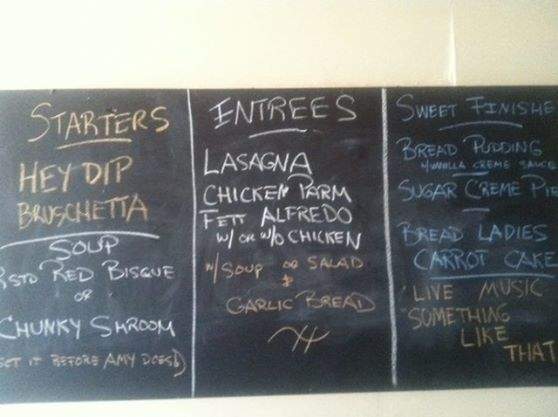 STARTERS
HEY DIP
BRUSCHETTA
SOUP
RSTD RED BISQUE
OR
CHUNKY SHROOM
GET IT BEFORE AMY DOES!)
ENTREES
LASAGNA
CHICKEN PARM
FETT ALFREDO
W/ OR W/O CHICKEN
W/ SOUP OR SALAD
&
GARLIC BREAD
SWEET FINISHE
BREAD PUDDING
W/ VANILLA CREME SAUCE
SUGAR CREME PI
BREAD LADIES
CARROT CAKE
LIVE MUSIC
"SOMETHING
LIKE
THAT